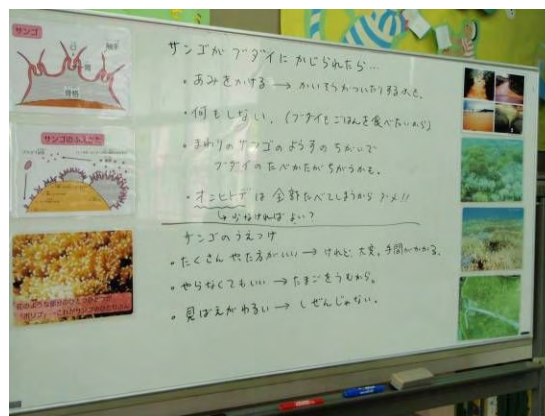 サンゴ
口
触手
胃
骨格
サンゴのふえかた
ポリプ これがサンゴのひとつひとつ
サンゴが ブダイに かじられたら…
・あみをかける → かいそうがついたりするので、
・何もしない。(ブダイもごはんを食べたいから)
・まわりのサンゴのようすのちがいで
ブダイのたべかたがちがうかも。
・オニヒトデは全部たべてしまうからダメ!!
↳少なければよい?
サンゴのうえつけ
・たくさんやった方がいい → けれど、大変。手間がかかる。
・やらなくてもいい → たまごをうむから。
・見ばえがわるい → しぜんじゃない。